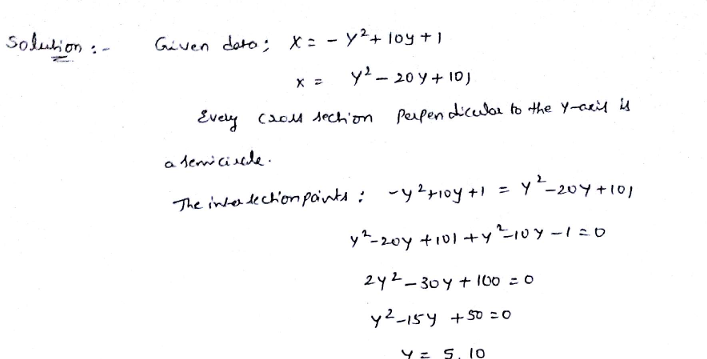 Solution :- Given data ; x = - y² + 10y + 1
x = y² - 20y + 101
Every cross section perpendicular to the y-axis is
a semicircle.
The intersection points : -y² + 10y + 1 = y² - 20y + 101
y² - 20y + 101 + y² - 10y - 1 = 0
2y² - 30y + 100 = 0
y² - 15y + 50 = 0
y = 5, 10